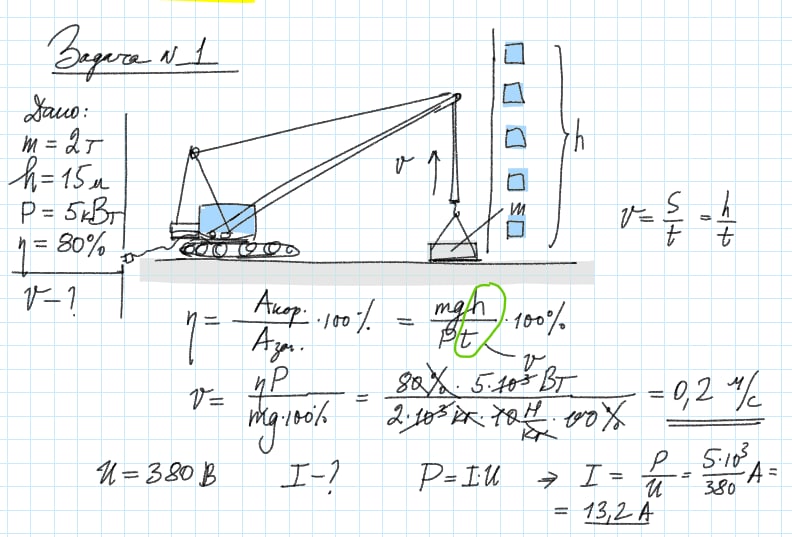 Задача N 1
Дано:
m = 2т
h = 15м
P = 5кВт
η = 80%
v - ?
v
m
h
v = S/t = h/t
η = Aкор./Aзат. · 100% = mgh/Pt · 100%
v
v = ηP/mg·100% = 80% · 5·10³ Вт/2·10³ кг · 10 Н/кг · 100% = 0,2 м/с
U = 380 В I - ? P = I·U → I = P/U = 5·10³/380 A =
= 13,2 A